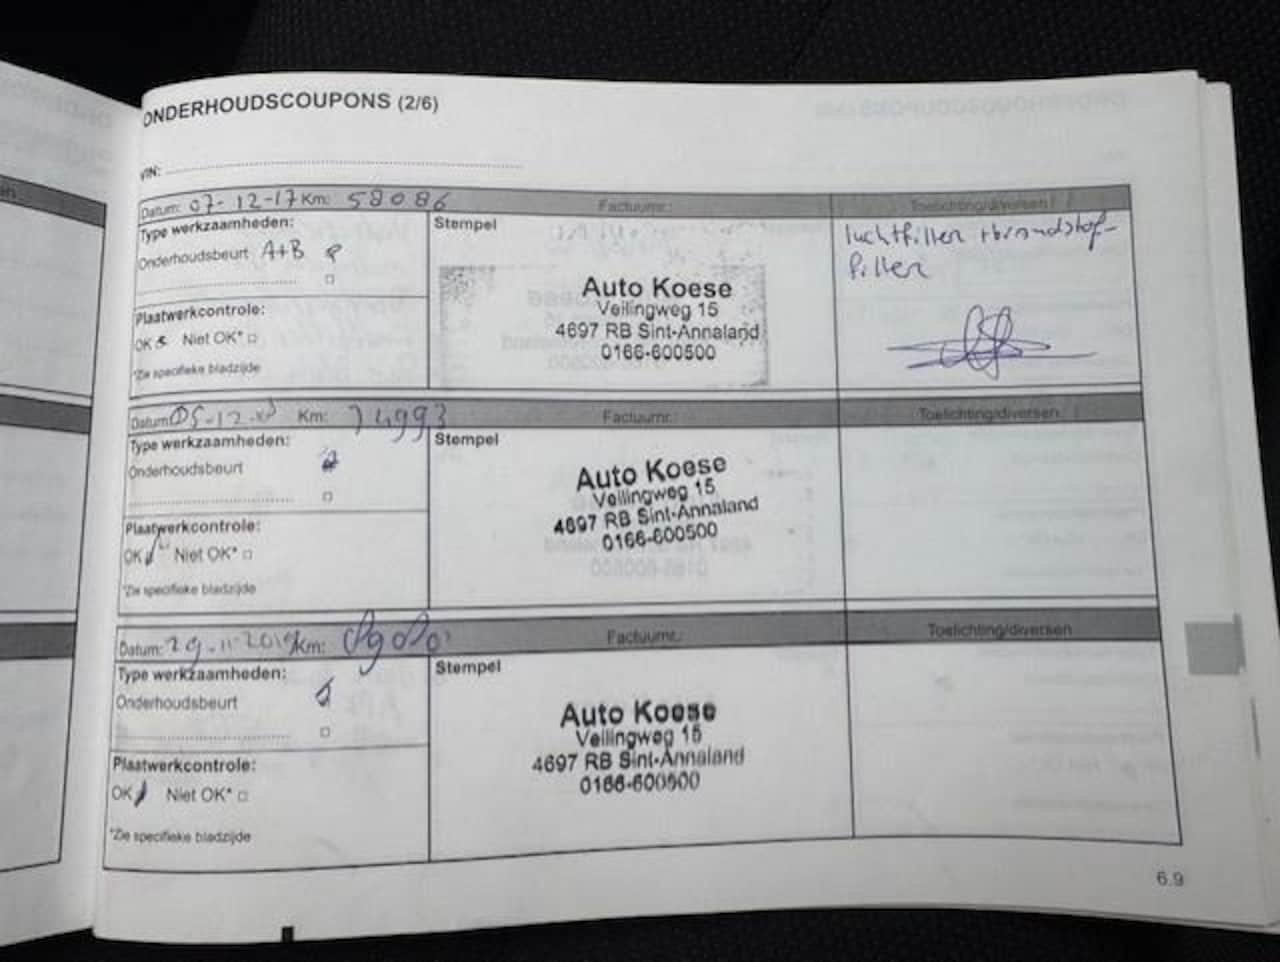 ONDERHOUDSCOUPONS (2/6)
VIN:
Datum: 07-12-17 Km: 58086 Factuurnr.: Toelichting/diversen
Type werkzaamheden:
Onderhoudsbeurt A+B
Stempel
Auto Koese
Veilingweg 15
4697 RB Sint-Annaland
0166-600500
luchtfilter + brandstof-
filter
Plaatwerkcontrole:
OK Niet OK*
*Zie specifieke bladzijde
Datum: 05-12- Km: 74993 Factuurnr.: Toelichting/diversen
Type werkzaamheden:
Onderhoudsbeurt
Stempel
Auto Koese
Veilingweg 15
4697 RB Sint-Annaland
0166-600500
Plaatwerkcontrole:
OK Niet OK*
*Zie specifieke bladzijde
Datum: 29-11-2019 Km: Factuurnr.: Toelichting/diversen
Type werkzaamheden:
Onderhoudsbeurt
Stempel
Auto Koese
Veilingweg 15
4697 RB Sint-Annaland
0166-600500
Plaatwerkcontrole:
OK Niet OK*
*Zie specifieke bladzijde
6.9